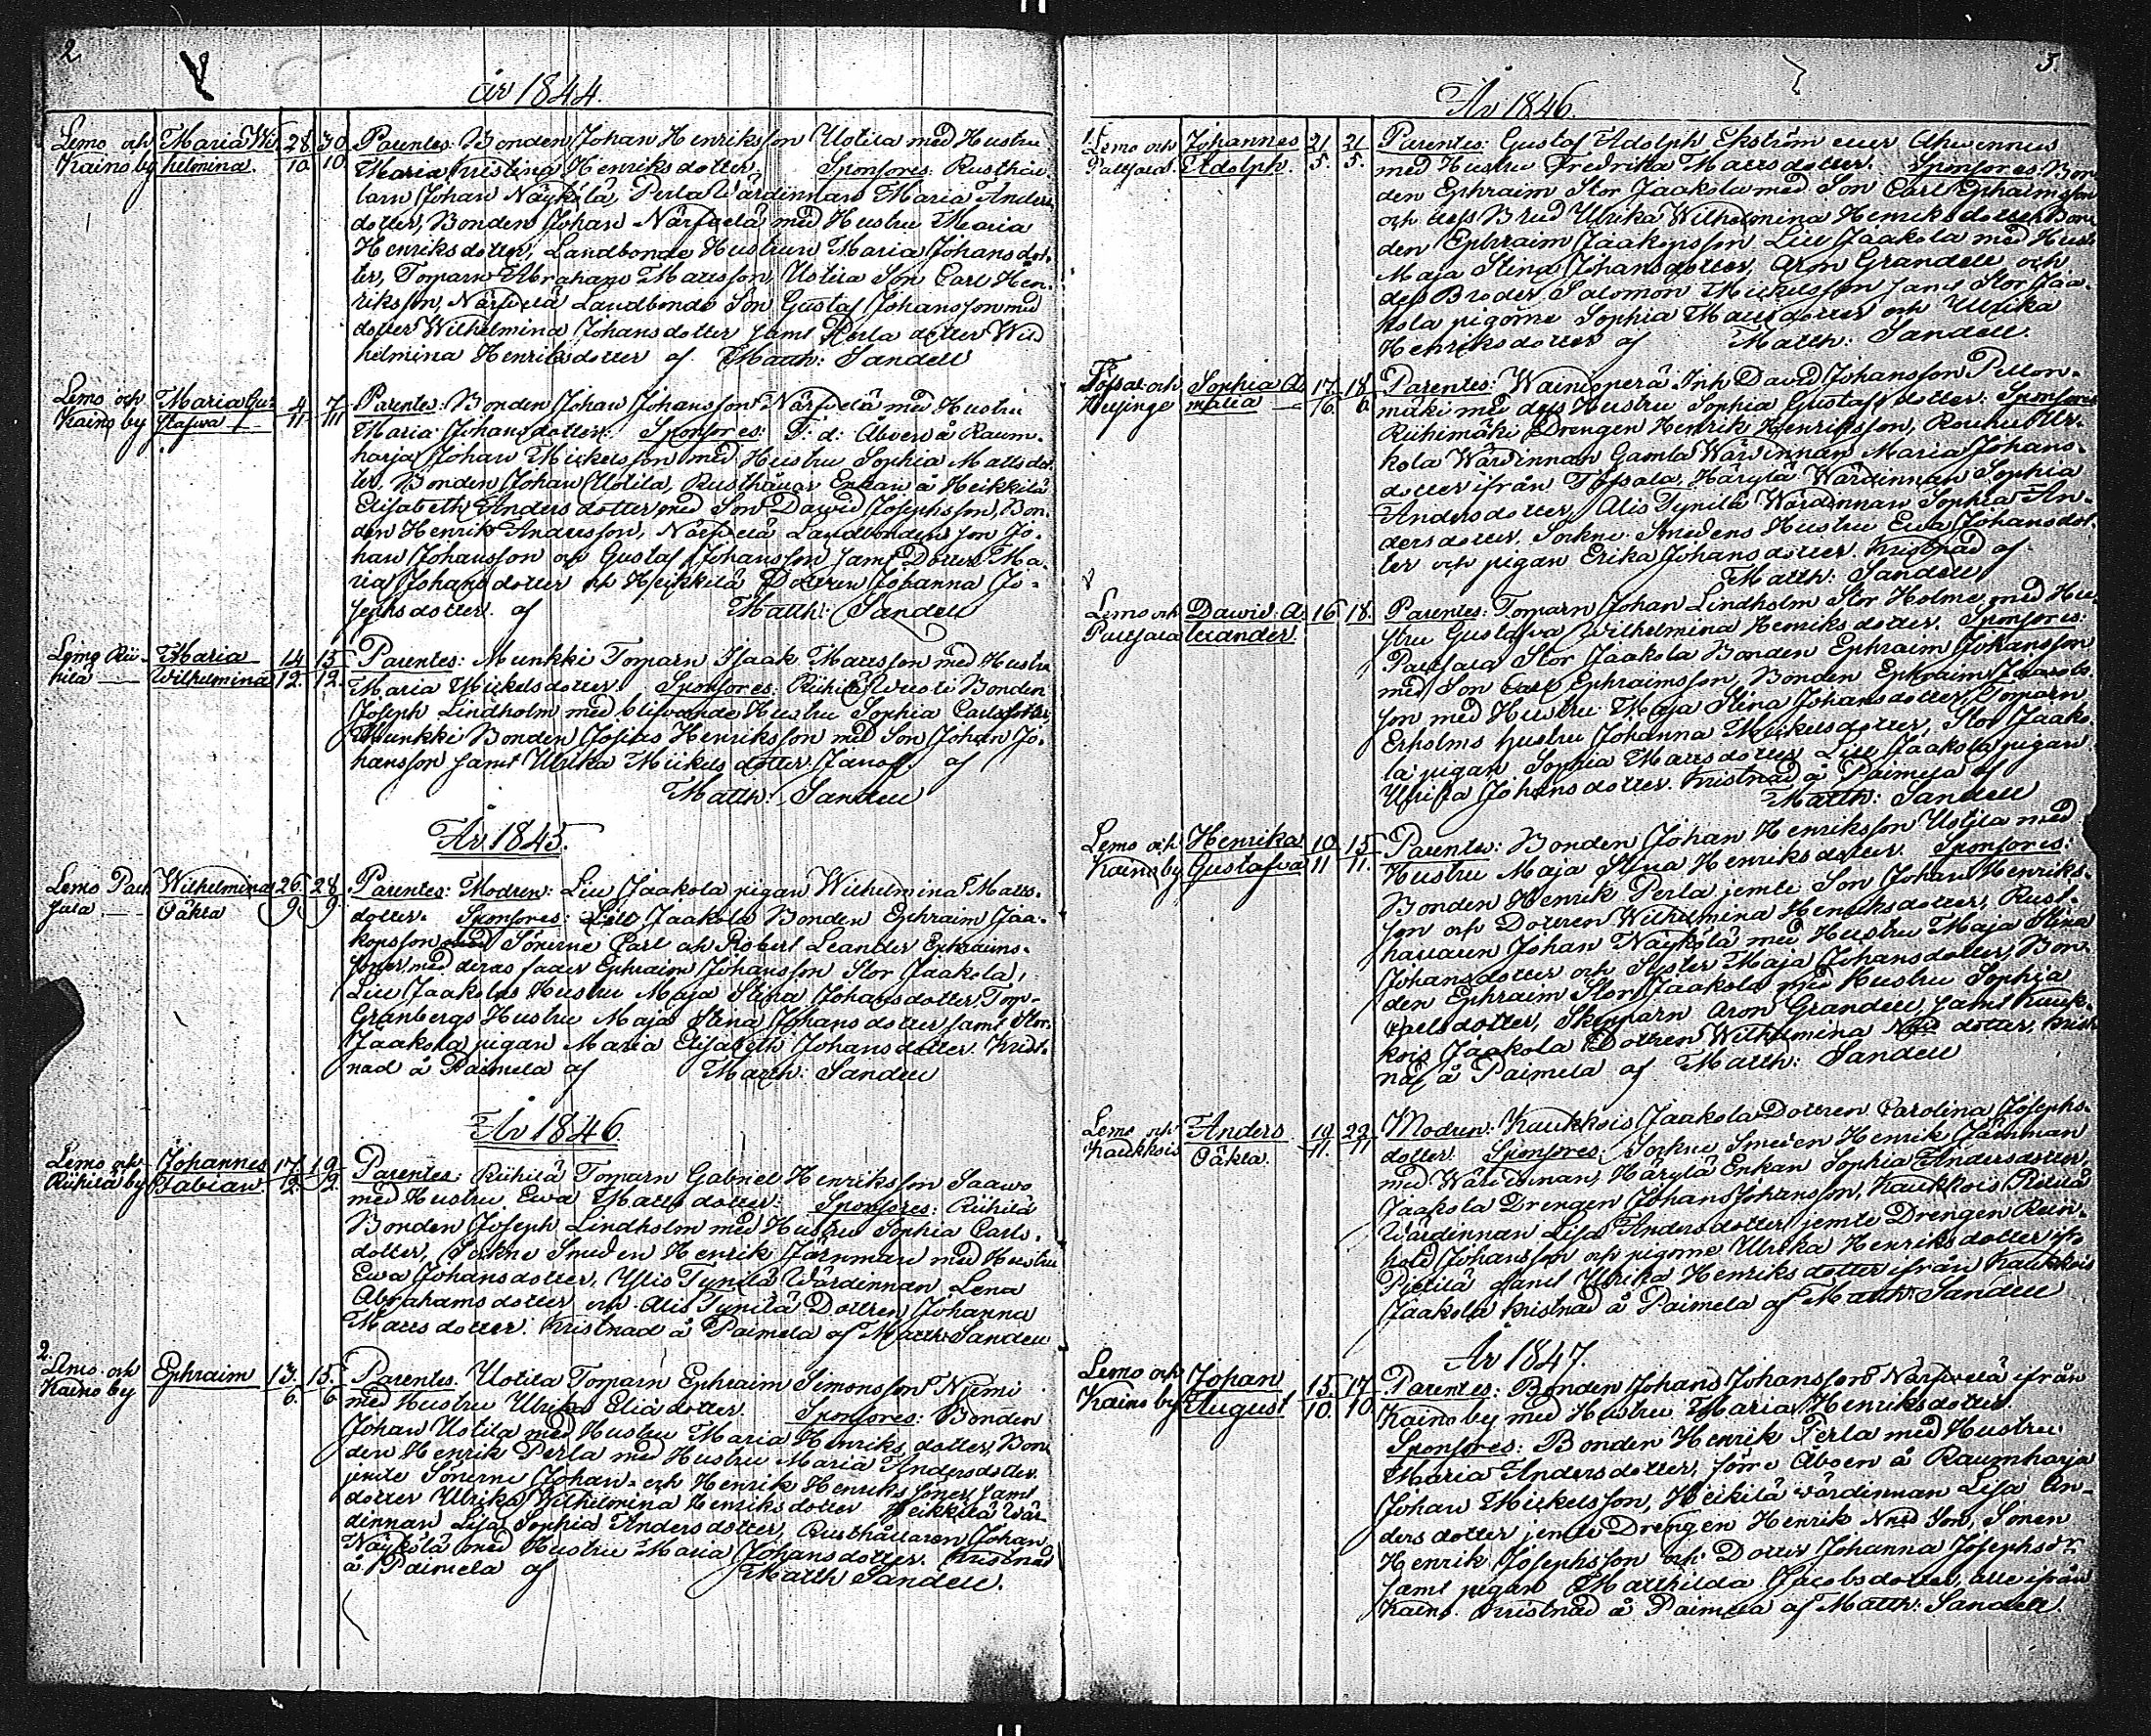 2
år 1844.
Lemo och Maria Wil- 28 30 Parentes: Bonden Johan Henriksson Uotila med Hustru
Kaino by helmina. 10. 10 Maria Kristina Henriks dotter. Sponsores: Rusthål-
larn Johan Näykölä, Perla Wärdinnan Maria Anders
dotter, Bonden Johan Närfvelä med Hustru Maria
Henriks dotter, Landbonde Hustrun Maria Johans dot-
ter, Torparn Abraham Mattsson, Uotila Son Carl Hen-
riksson, Närfvelä Landbonde Son Gustaf Johansson med
dotter Wilhelmina Johans dotter samt Perla dotter Wil
helmina Henriksdotter af Matth: Sandell
Lemo och Maria Gus- 4 7 Parentes: Bonden Johan Johansson Närfvelä med Hustru
Kaino by tafwa 11 11 Maria Johansdotter: Sponsores: F: d: Åboen å Raum-
harja Johan Mickelsson med Hustru Sophia Matts dot-
ter, Bonden Johan Uotila, Rusthållar Enkan å Heikkilä
Elisabeth Anders dotter med Son David Josephsson, Bon-
den Henrik Andersson, Närfvelä Landbonden son Jo-
han Johansson och Gustaf Johansson samt Dotter Ma-
ria Johans dotter och Heikkilä Dottren Johanna Jo-
sephs dotter. af Matth: Sandell
Lemo Rii- Maria 14 15 Parentes: Munkki Torparn Isaak Mattsson med Hustru
hilä Wilhelmina 12. 12. Maria Mickels dotter. Sponsores: Riihilä Bonden
Joseph Lindholm med blifvande Hustru Sophia Carlsdotter,
Munkki Bonden Josias Henriksson med Son Johan Jo-
hansson samt Ulrika Mickels dotter af
Matth: Sandell
År 1845.
Lemo Pas- Wilhelmina 26 28 Parentes: Modren: Lill Jaakola pigan Wilhelmina Matts-
sala Oäkta 9 9 dotter. Sponsores: Lill Jaakola Bonden Ephraim Jaa-
kopsson med Sönerne Carl och Robert Leander Ephraims-
söner, med deras fader Ephraim Johansson Stor Jaakola,
Lill Jaakolas Hustru Maja Stina Johansdotter, Torp.
Granbergs Hustru Maja Stina Johans dotter samt Stor-
Jaakola pigan Maria Elisabeth Johans dotter. Krist-
nad å Paimela af Matth: Sandell
År 1846.
Lemo och Johannes 17. 19 Parentes: Riihilä Torparn Gabriel Henriksson Saawo
Riihilä by Fabian. 2. 2. med Hustru Ewa Matts dotter: Sponsores: Riihilä
Bonden Joseph Lindholm med Hustru Sophia Carls-
dotter, Sockne Smeden Henrik Järnman med Hustru
Ewa Johans dotter, Ylis Tynilä Wärdinnan Lena
Abrahams dotter och Alis Tynilä Dottren Johanna
Matts dotter. Kristnad å Paimela af Matth: Sandell
2.
Lemo och Ephraim 13. 15. Parentes. Uotila Torparn Ephraim Simonsson Niemi
Kaino by 6. 6 med Hustru Ulrika Elia dotter. Sponsores: Bonden
Johan Uotila med Hustru Maria Henriks dotter, Bon-
den Henrik Perla med Hustru Maria Anders dotter
jemte Sönerne Johan och Henrik Henriks söner samt
dotter Ulrika Wilhelmina Henriks dotter Heikkilä Wär-
dinnan Lisa Sophia Anders dotter, Rusthållaren Johan
Näykölä med Hustru Maria Johans dotter. Kristnad
å Paimela af Matth Sandell.
3.
År 1846.
Lemo och Johannes 21 21 Parentes: Gustaf Adolph Ekström eller Ahwennus
Adolph. 5. 5. med Hustru Fredrika Matts dotter. Sponsores: Bon-
den Ephraim Stor Jaakola med Son Carl Ephraimsson
och dess Brud Ulrika Wilhelmina Henriks dotter, Bon-
den Ephraim Jaakopsson Lill Jaakola med Hustr
Maja Stina Johansdotter, Aron Grandell och
dess Broder Salomon Mickelsson samt Stor Jaa-
kola pigorne Sophia Matts dotter och Ulrika
Henriks dotter af Matth: Sandell.
Töfsal och Sophia A- 17. 18. Parentes: Wainionperä Inh David Johansson Pellon-
Helsinge malia 6. 6. mäki med dess Hustru Sophia Gustafs dotter: Sponsores
Riihimäki Drengen Henrik Henriksson,
kola Wärdinnan Gamla Wärdinnan Maria Johans-
dotter ifrån Töfsala, Härylä Wärdinnan Sophia
Anders dotter, Alis Tynilä Wärdinnan Sophia An-
ders dotter, Sockne Smedens Hustru Ewa Johans dot-
ter och pigan Erika Johans dotter. Kristnad af
Matth: Sandell
Lemo och Dawid A- 16 18. Parentes: Torparn Johan Lindholm Stor Holma med Hu-
lexander. stru Gustafva Wilhelmina Henriks dotter. Sponsores:
Stor Jaakola Bonden Ephraim Johansson
med Son Carl Ephraimsson, Bonden Ephraim Jacobs-
son med Hustru Maja Stina Johans dotter, Torparn
Erholms hustru Johanna Mickels dotter, Stor Jaako-
la pigan Sophia Matts dotter, Lill Jaakola pigan
Ulrika Johans dotter. Kristnad å Paimela af
Matth: Sandell
Lemo och Henrika 10 15 Parentes: Bonden Johan Henriksson Uotila med
Kaino by Gustafva 11 11. Hustru Maja Stina Henriks dotter. Sponsores:
Bonden Henrik Perla jemte Son Johan Henriks-
son och Dottren Wilhelmina Henriks dotter, Rust-
hållaren Johan Näykölä med Hustru Maja Stina
Johans dotter och Syster Maja Johans dotter, Bon-
den Ephraim Stor Jaakola med Hustru Sophia
Carls dotter, Skepparn Aron Grandell, samt Kauk-
kois Jaakola Dottren Wilhelmina dotter, krist-
nad å Paimela af Matth: Sandell
Lemo och Anders 19 22 Modren: Kaukkois Jaakola Dottren Carolina Josephs-
Kaukkois Oäkta. 11. 11 dotter. Sponsores: Sockne Smeden Henrik Järnman
med Wärdinnan, Härylä Enkan Sophia Anders dotter,
Jaakola Drengen Johan Johansson, Kaukkois Pietilä
Wärdinnan Lisa Anders dotter jemte Drengen Rein-
hold Johansson och pigorne Ulrika Henriks dotter ifr.
Pietilä samt Ulrika Henriks dotter ifrån Kaukkois
Jaakola kristnad å Paimela af Matth: Sandell
År 1847.
Lemo och Johan 15. 17. Parentes: Bonden Johan Johansson Närfwelä ifrån
Kaino by August 10. 10 Kaino by med Hustru Maria Henriks dotter.
Sponsores: Bonden Henrik Perla med Hustru
Maria Anders dotter, förre Åboen å Raumharja
Johan Mickelsson, Heikilä wärdinnan Lisa An-
ders dotter jemte Drengen Henrik Son, Sonen
Henrik Josephsson och Dotter Johanna Josephs dr
samt pigan Mathilda Jacobs dotter, alle ifrån
Kaino. Kristnad å Paimela af Matth: Sandell.